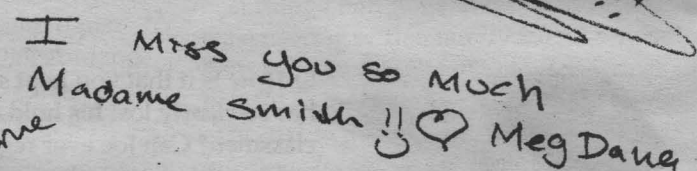 I Miss you so Much
Madame Smith !! ♡ Meg Dang
me